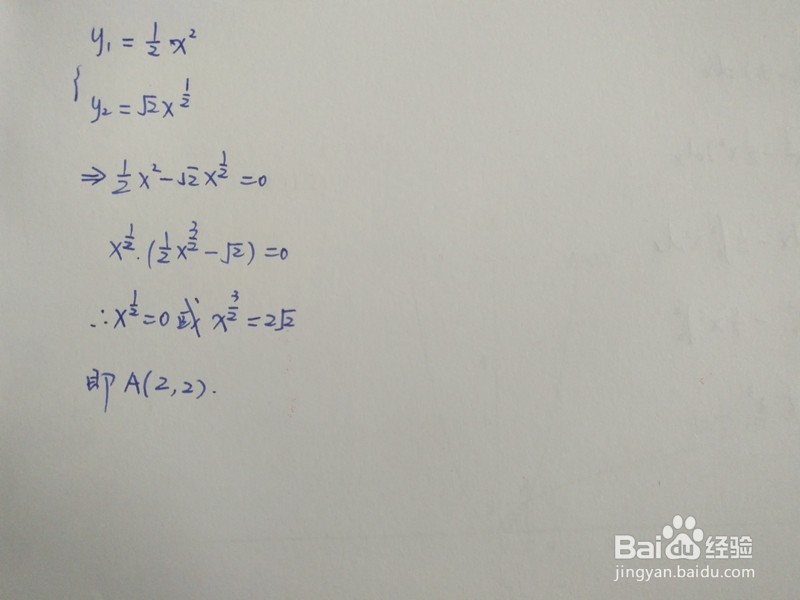 y₁ = 1/2 x²
{
y₂ = √2 x^(1/2)
⇒ 1/2 x² - √2 x^(1/2) = 0
x^(1/2) · (1/2 x^(3/2) - √2) = 0
∴ x^(1/2) = 0 或 x^(3/2) = 2√2
即 A(2,2).
Baidu经验
jingyan.baidu.com